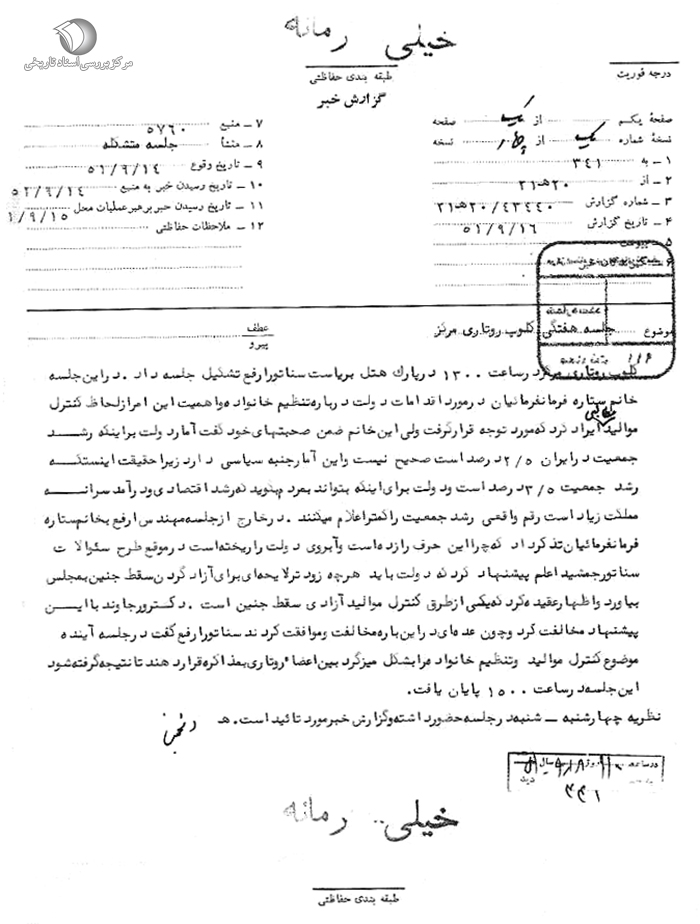 مرکز بررسی اسناد تاریخی
خیلی محرمانه
درجه فوریت
طبقه بندی حفاظتی
گزارش خبر
صفحهٔ یکم از یک صفحه
نسخهٔ شماره یک از چهار نسخه
۱ - به ۳۴۱
۲ - از ۲۰هـ۲۱
۳ - شماره گزارش ۲۰/۴۳۴۴۰هـ۲۱
۴ - تاریخ گزارش ۵۱/۹/۱۶
۵ - پیوست
۶ -
۷ - منبع ۵۷۶۰
۸ - منشأ جلسه متشکله
۹ - تاریخ وقوع ۵۱/۹/۱۴
۱۰ - تاریخ رسیدن خبر به منبع ۵۲/۹/۱۴
۱۱ - تاریخ رسیدن خبر برهبر عملیات محل ۱/۹/۱۵
۱۲ - ملاحظات حفاظتی
موضوع جلسه هفتگی کلوپ روتاری مرکز
عطف
پیرو
کلوپ روتاری مرکز در ساعت ۱۳۰۰ در پارك هتل بریاست سناتور ارفع تشکیل جلسه داد . در این جلسه
خانم ستاره فرمانفرمائیان در مورد اقدامات دولت در باره تنظیم خانواده و اهمیت این امر از لحاظ کنترل
موالید ایراد کرد که مورد توجه قرار گرفت ولی این خانم ضمن صحبتهای خود گفت آمار دولت بر اینکه رشد
جمعیت در ایران ۲/۵ درصد است صحیح نیست و این آمار جنبه سیاسی دارد زیرا حقیقت اینستکه
رشد جمعیت ۳/۵ درصد است و دولت برای اینکه بتواند بمردم بگوید که رشد اقتصادی و درآمد سرانه
مملکت زیاد است رقم واقعی رشد جمعیت را کمتر اعلام میکنند . در خارج از جلسه مهندس ارفع بخانم ستاره
فرمانفرمائیان تذکر داد که چرا این حرف را زده است و آبروی دولت را ریخته است در موقع طرح سئوالات
سناتور جمشید اعلم پیشنهاد کرد که دولت باید هرچه زودتر لایحه ای برای آزاد کردن سقط جنین به مجلس
بیاورد و اظهار عقیده کرد که یکی از طرق کنترل موالید آزادی سقط جنین است . دکتر ورجاوند با این
پیشنهاد مخالفت کرد و چون عده ای در این باره مخالفت و موافقت کردند سناتور ارفع گفت در جلسه آینده
موضوع کنترل موالید و تنظیم خانواده را بشکل میزگرد بین اعضاء روتاری بمذاکره قرار دهند تا نتیجه گرفته شود
این جلسه در ساعت ۱۵۰۰ پایان یافت .
نظریه چهارشنبه ـ شنبه در جلسه حضور داشته و گزارش خبر مورد تائید است . هـ
خیلی محرمانه
طبقه بندی حفاظتی